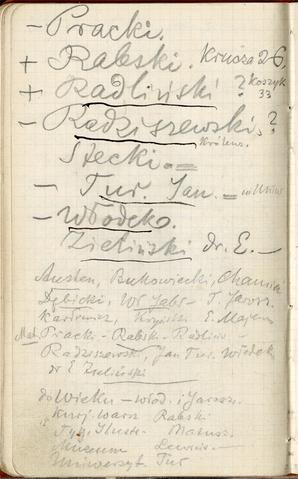 — Pracki.
+ Rabski. Krucza 26,
+ Radliński ? Koszyk 33
— Radziszewski, ?
Królew.
Stecki. =
— Tur. Jan. =
— Włodek.
Zieliński dr. E. —
Austen, Bukowiecki,
Dębicki, Wł. Jabł - T. Jarosz.
E. Majew
Mat. Pracki - Rabski - Radliń
Radziszewski, Jan Tur. Włodek
dr E Zieliński
do Wieku - włod. i Jarosz.
Kurj. Warsz Rabski
Tyg. Ilustr - Matusz.
Muzeum Lewiń -
Uniwersyt. Tur